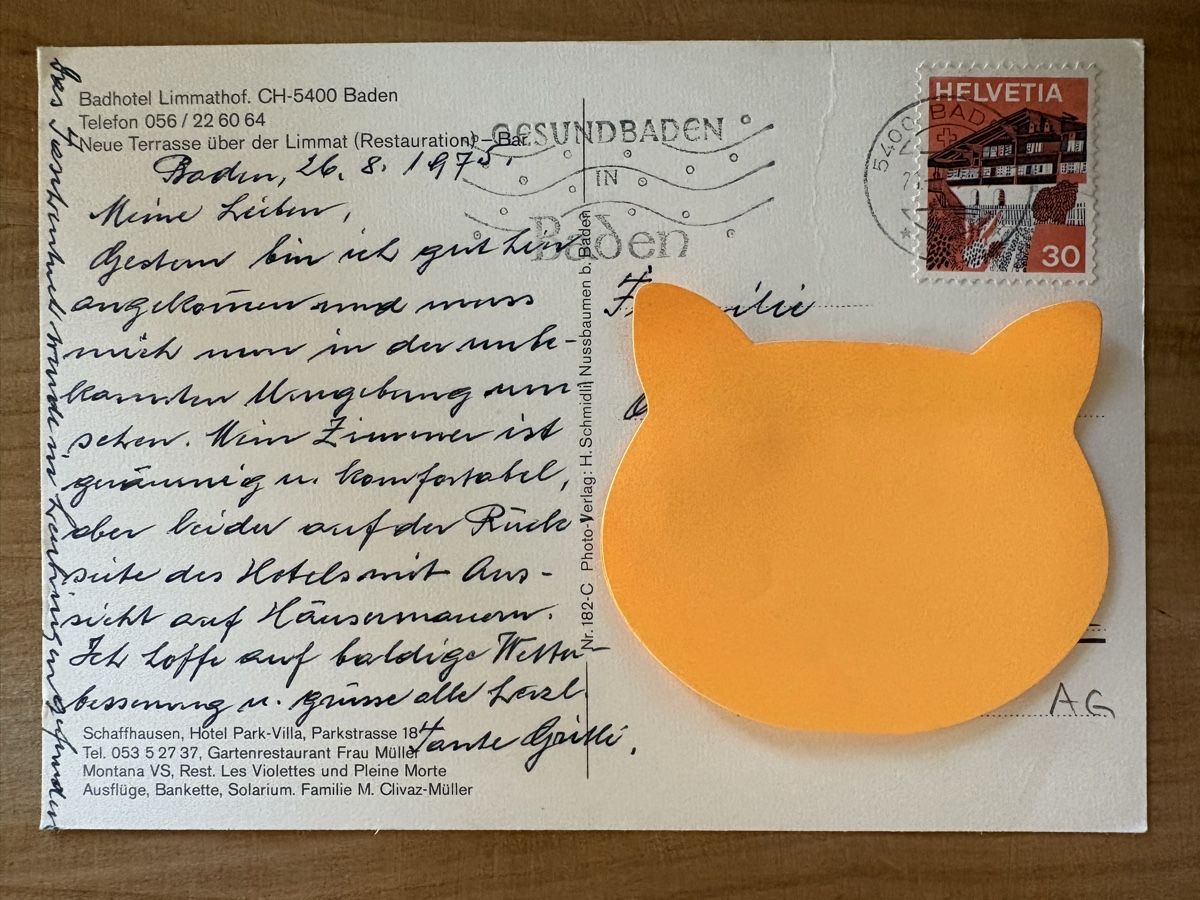 Badhotel Limmathof. CH-5400 Baden
Telefon 056 / 22 60 64
Neue Terrasse über der Limmat (Restauration) – Bar
Baden, 26. 8. 1975.
Meine Lieben,
Gestern bin ich gut hier
angekom̄en und muss
mich nun in der unbe-
kannten Umgebung um
sehen. Mein Zimmer ist
geräumig u. komfortabel,
aber leider auf der Rück
seite des Hotels mit Aus-
sicht auf Häusermauern.
Ich hoffe auf baldige Wetter-
besserung u. grüsse alle herzl.
Tante Gritli.
Das
wurde in
Schaffhausen, Hotel Park-Villa, Parkstrasse 18
Tel. 053 5 27 37, Gartenrestaurant Frau Müller
Montana VS, Rest. Les Violettes und Pleine Morte
Ausflüge, Bankette, Solarium. Familie M. Clivaz-Müller
Nr. 182-C Photo-Verlag: H. Schmidli, Nussbaumen b. Baden
GESUNDBADEN
IN
Baden
5400 BADEN
HELVETIA
30
Familie
AG